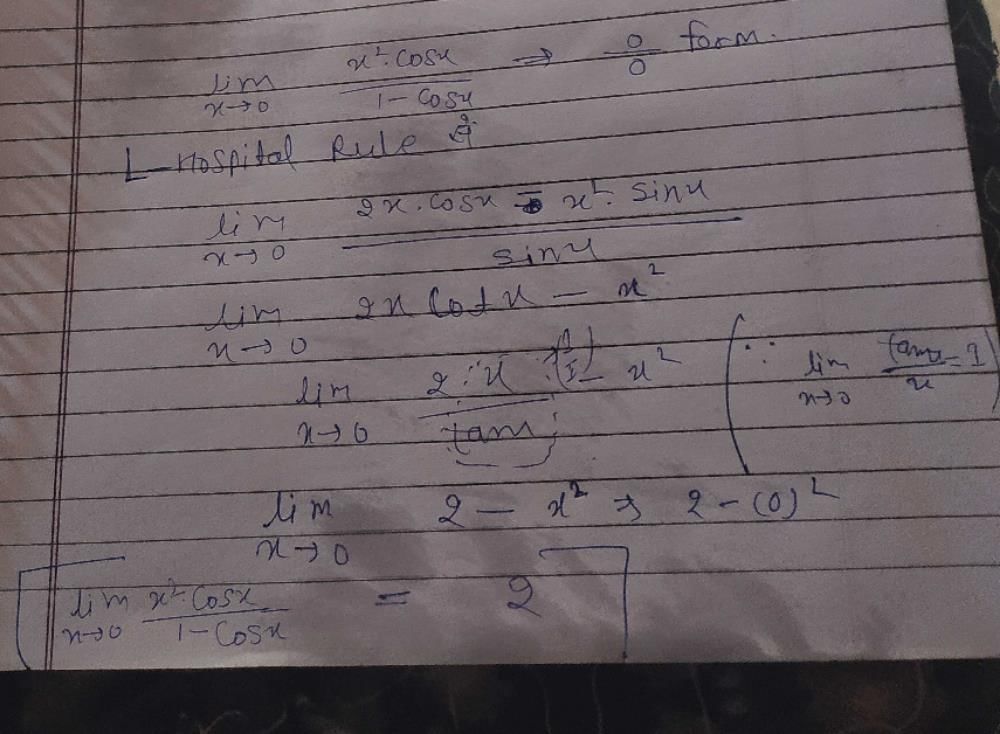 lim x→0 x²·cosx / 1-cosx ⇒ 0/0 form.
L-Hospital Rule से
lim x→0 2x·cosx - x²·sinx / sinx
lim x→0 2x cotx - x²
lim x→0 2·x / tanx - x² (∵ lim x→0 tanx/x = 1)
lim x→0 2 - x² → 2-(0)²
lim x→0 x²·cosx / 1-cosx = 2